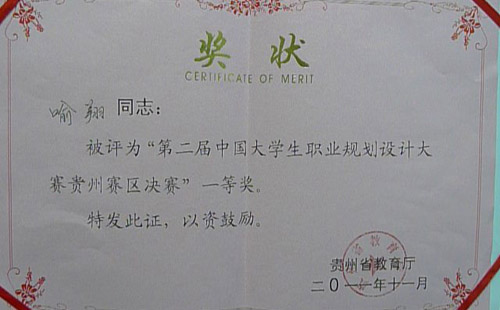 奖状
CERTIFICATE OF MERIT
喻翔 同志：
被评为“第二届中国大学生职业规划设计大
赛贵州赛区决赛”一等奖。
特发此证，以资鼓励。
贵州省教育厅
二0一一年十一月